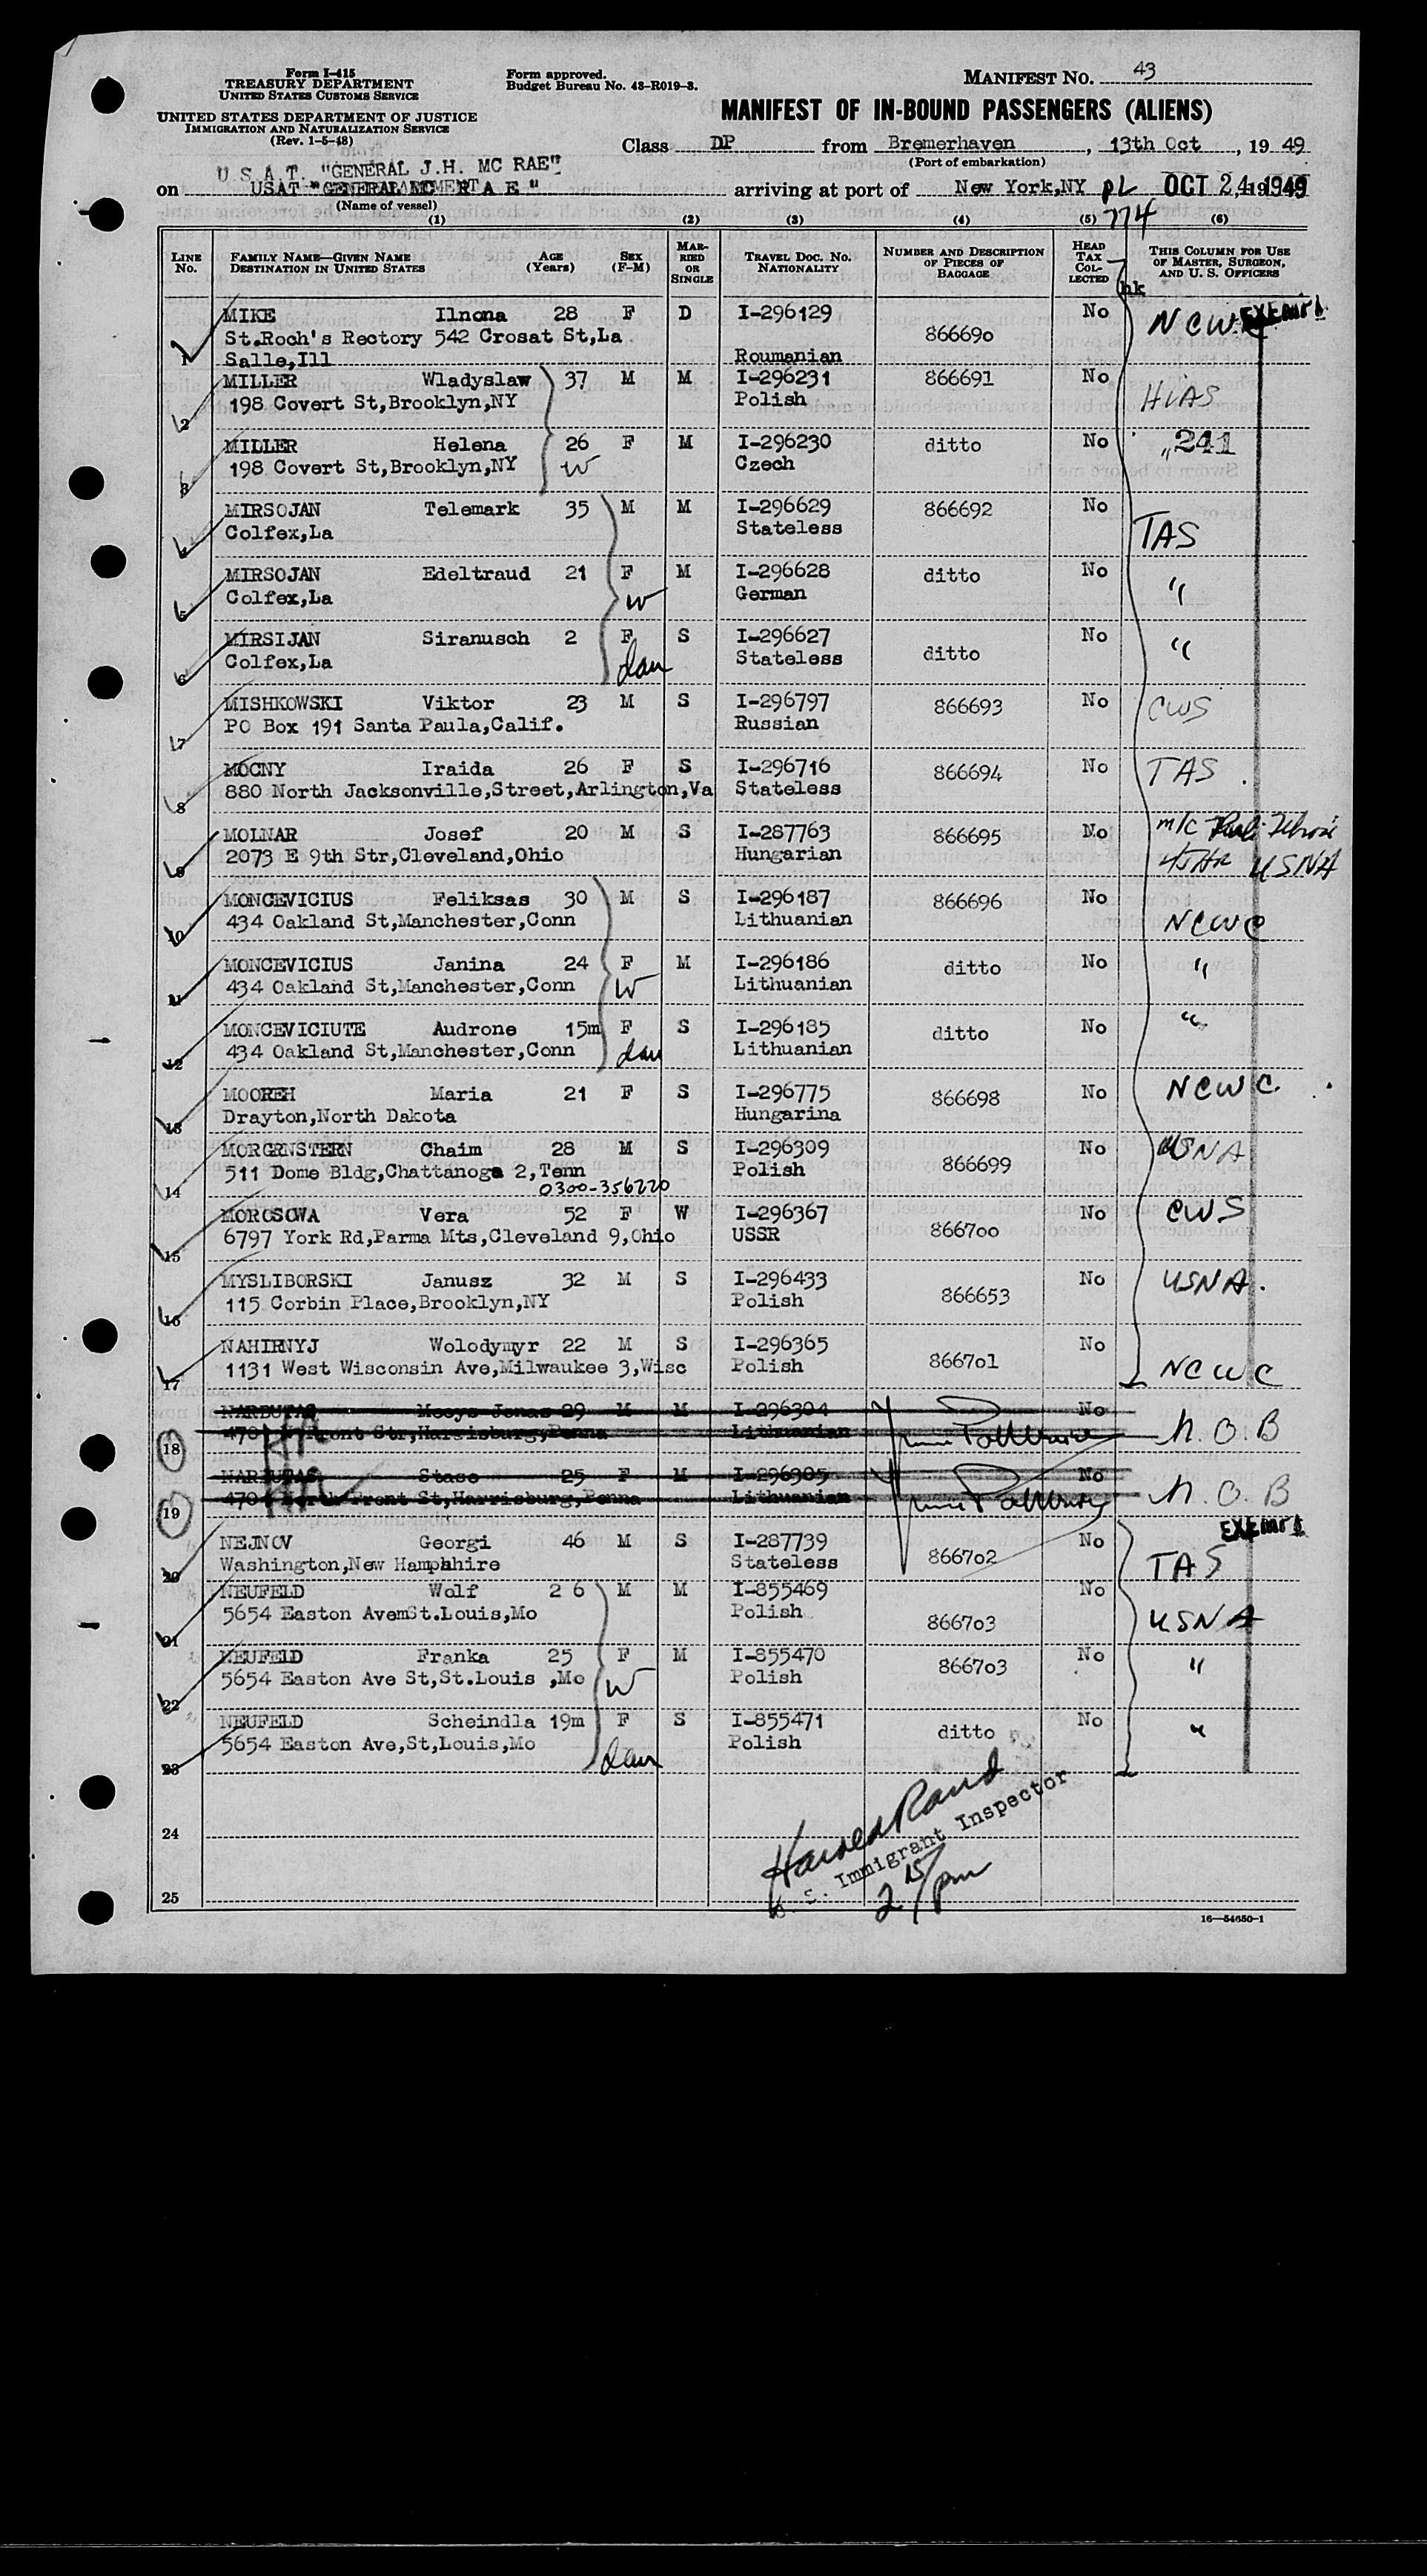 Form I-415
TREASURY DEPARTMENT
UNITED STATES CUSTOMS SERVICE
UNITED STATES DEPARTMENT OF JUSTICE
IMMIGRATION AND NATURALIZATION SERVICE
(Rev. 1-5-48)
Form approved.
Budget Bureau No. 43-R019-3.
MANIFEST NO. 43
MANIFEST OF IN-BOUND PASSENGERS (ALIENS)
Class DP from Bremerhaven, 13th Oct, 19 49
(Port of embarkation)
U S A T. "GENERAL J.H. MC RAE"
on USAT "GENERAL MC RAE" arriving at port of New York,NY OCT 24 1949
(Name of vessel)
774
(1) (2) (3) (4) (5) (6)
LINE No. FAMILY NAME—GIVEN NAME DESTINATION IN UNITED STATES AGE (Years) SEX (F-M) MARRIED OR SINGLE TRAVEL DOC. NO. NATIONALITY NUMBER AND DESCRIPTION OF PIECES OF BAGGAGE HEAD TAX COLLECTED THIS COLUMN FOR USE OF MASTER, SURGEON, AND U. S. OFFICERS
hk
1 MIKE Ilnona 28 F D I-296129 866690 No NCWC EXEMPT
St.Roch's Rectory 542 Crosat St,La
Salle,Ill Roumanian
2 MILLER Wladyslaw 37 M M I-296231 866691 No HIAS
198 Covert St,Brooklyn,NY Polish
3 MILLER Helena 26 F M I-296230 ditto No " 241
198 Covert St,Brooklyn,NY W Czech
4 MIRSOJAN Telemark 35 M M I-296629 866692 No TAS
Colfex,La Stateless
5 MIRSOJAN Edeltraud 21 F M I-296628 ditto No "
Colfex,La W German
6 MIRSIJAN Siranusch 2 F S I-296627 ditto No "
Colfex,La dau Stateless
7 MISHKOWSKI Viktor 23 M S I-296797 866693 No CWS
PO Box 191 Santa Paula,Calif. Russian
8 MOCNY Iraida 26 F S I-296716 866694 No TAS
880 North Jacksonville,Street,Arlington,Va Stateless
9 MOLNAR Josef 20 M S I-287763 866695 No m/c
2073 E 9th Str,Cleveland,Ohio Hungarian USNA
10 MONCEVICIUS Feliksas 30 M S I-296187 866696 No NCWC
434 Oakland St,Manchester,Conn Lithuanian
11 MONCEVICIUS Janina 24 F M I-296186 ditto No "
434 Oakland St,Manchester,Conn W Lithuanian
12 MONCEVICIUTE Audrone 15m F S I-296185 ditto No "
434 Oakland St,Manchester,Conn dau Lithuanian
13 MOOREH Maria 21 F S I-296775 866698 No NCWC
Drayton,North Dakota Hungarina
14 MORGENSTERN Chaim 28 M S I-296309 866699 No USNA
511 Dome Bldg,Chattanoga 2,Tenn Polish
0300-356220
15 MOROSOWA Vera 52 F W I-296367 866700 No CWS
6797 York Rd,Parma Mts,Cleveland 9,Ohio USSR
16 MYSLIBORSKI Janusz 32 M S I-296433 866653 No USNA.
115 Corbin Place,Brooklyn,NY Polish
17 NAHIRNYJ Wolodymyr 22 M S I-296365 866701 No NCWC
1131 West Wisconsin Ave,Milwaukee 3,Wisc Polish
18 NARBUTAS Jonas 29 M M I-296304 No N.O.B
Front Str,Harrisburg,Penna Lithuanian
19 NARBUTAS Stase 25 F M I-296305 No N.O.B
North Front St,Harrisburg,Penna Lithuanian
20 NEJNOV Georgi 46 M S I-287739 866702 No TAS EXEMPT
Washington,New Hampshire Stateless
21 NEUFELD Wolf 2 6 M M I-855469 866703 No USNA
5654 Easton AvemSt.Louis,Mo Polish
22 NEUFELD Franka 25 F M I-855470 866703 No "
5654 Easton Ave St,St.Louis ,Mo W Polish
23 NEUFELD Scheindla 19m F S I-855471 ditto No "
5654 Easton Ave,St,Louis,Mo dau Polish
24
25
U. S. Immigrant Inspector
2 15/pm
16—54650-1